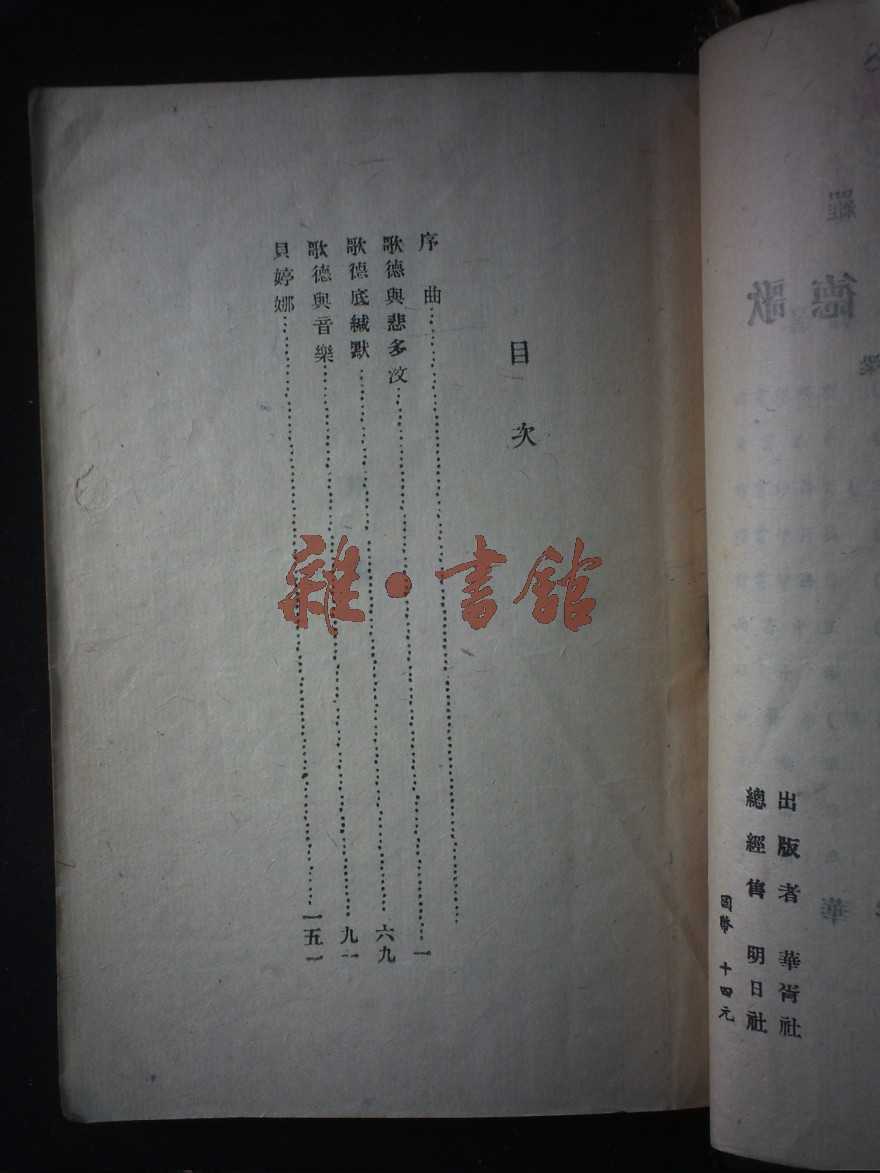 出版者 華胥社
總經售 明日社
國幣 十四元
目次
序曲……
歌德與悲多汶……一
歌德底緘默……六九
歌德與音樂……九一
貝婷娜……一五一
雜·書館